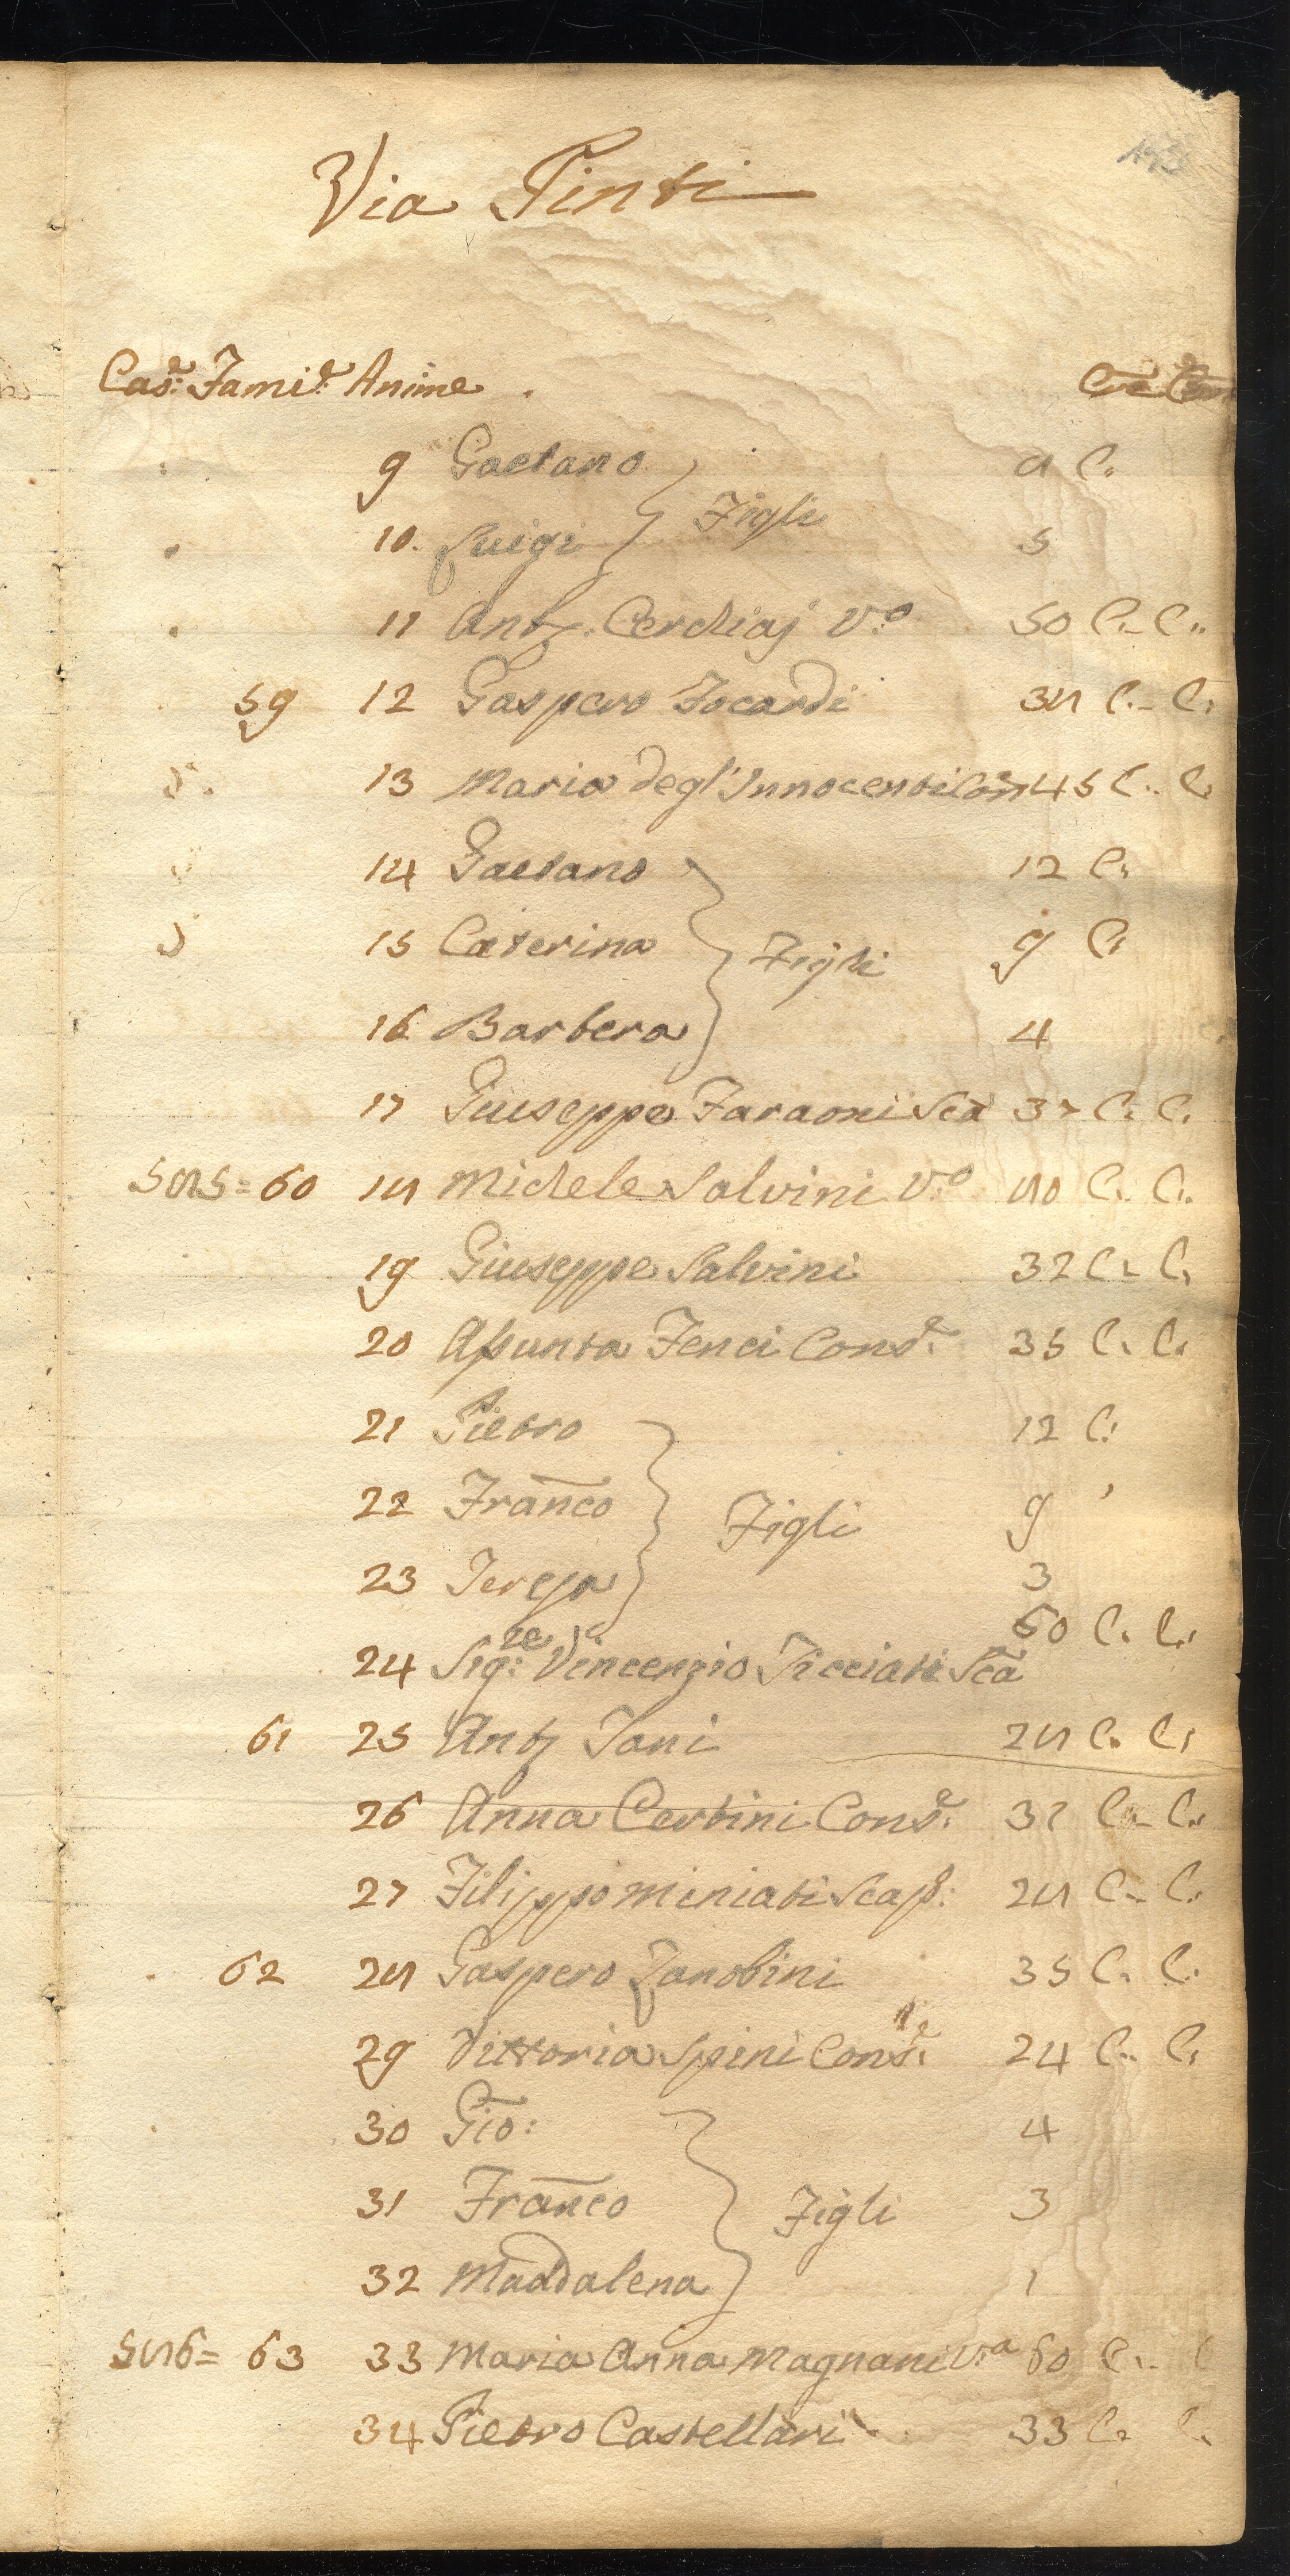 Via Pinti
Cas:e Fami:e Anime
9 Gaetano 8 C.
Figli
10. Luigi 5
11 Anto. Cerchiaj V:o 50 C. C.
59 12 Gaspero Focardi 38 C. C.
13 Maria degl'Innocenti Con 45 C. C.
14 Gaetano 12 C.
15 Caterina Figli 9 C.
16 Barbera 4
17 Giuseppe Faraoni Sca 37 C. C.
585= 60 18 Michele Salvini V:o 80 C. C.
19 Giuseppe Salvini 32 C. C.
20 Assunta Fenci Cons:e 35 C. C.
21 Pietro 12 C.
22 Franco Figli 9
23 Teresa 3
60 C. C.
24 Sig:re Vincenzio Ticciati Sca
61 25 Anto Tani 28 C. C.
26 Anna Certini Cons:e 32 C. C.
27 Filippo Miniati Scap: 28 C. C.
62 28 Gaspero Zanobini 35 C. C.
29 Vittoria Spini Cons:e 24 C. C.
30 Gio: 4
31 Franco Figli 3
32 Maddalena 1
586= 63 33 Maria Anna Magnani V:a 60 C. C
34 Pietro Castellari 33 C. C.